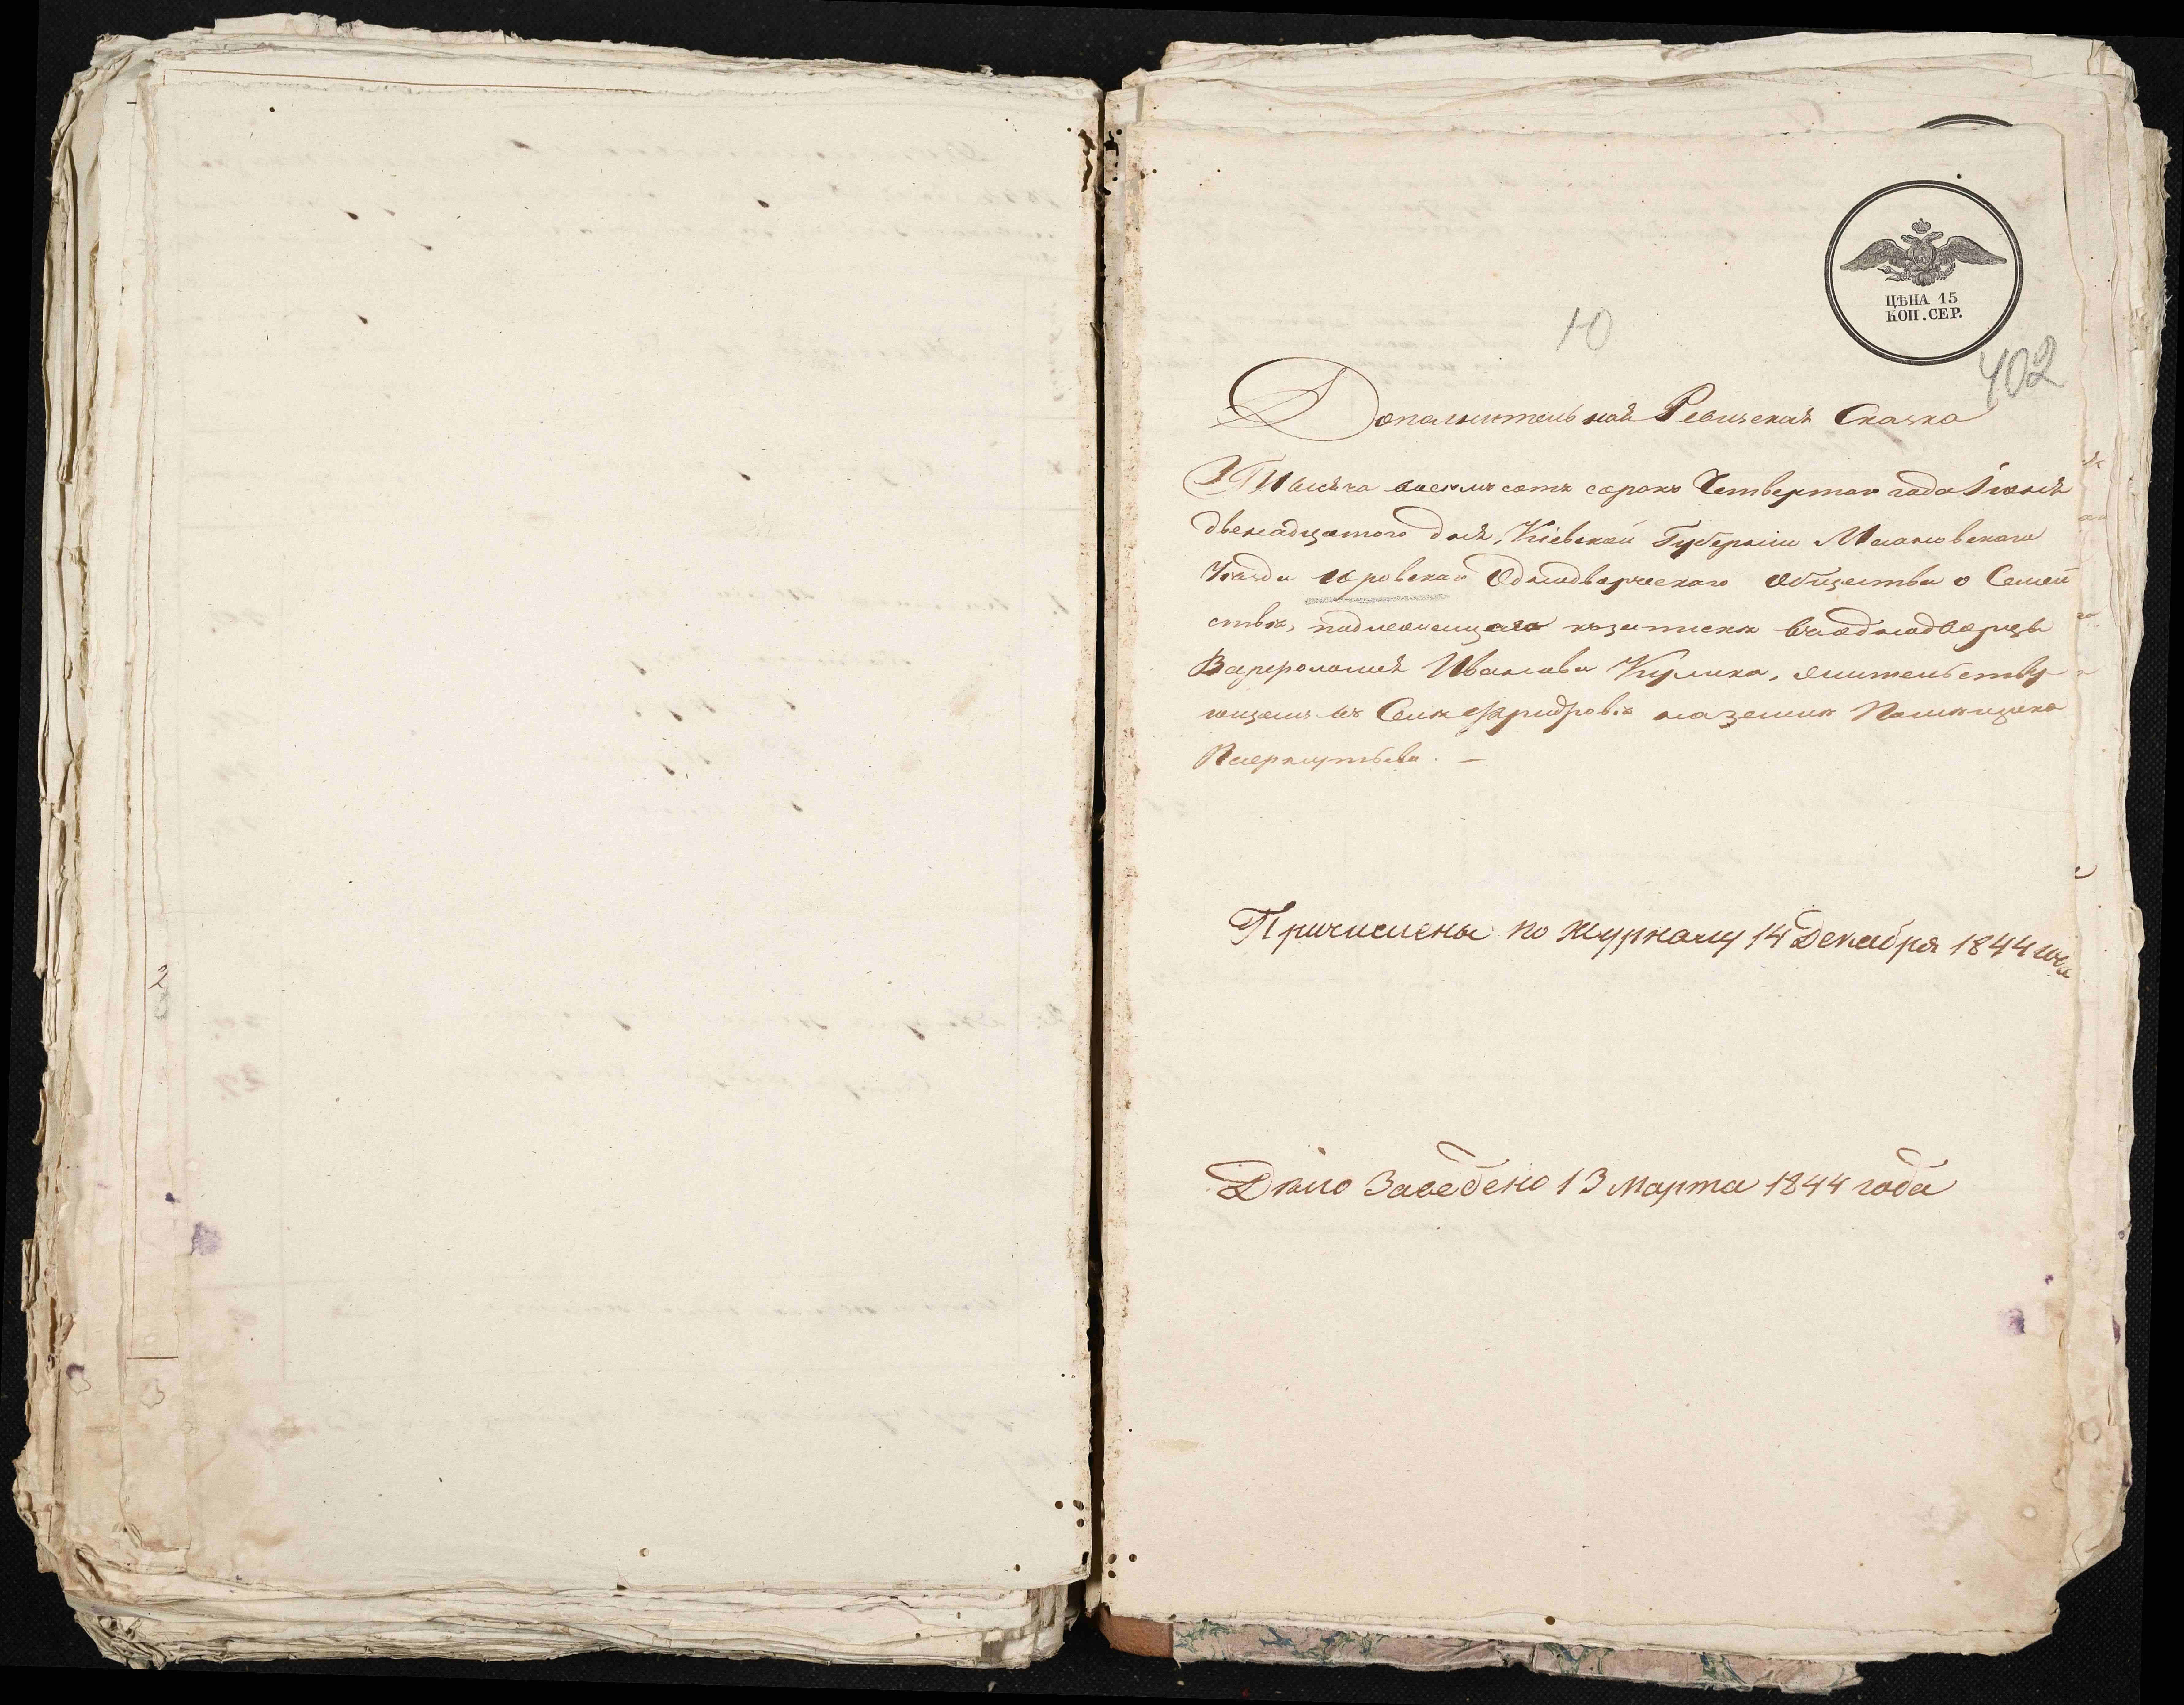 ЦѢНА 15
КОП. СЕР.
10
402
Дополнительная Ревизская Сказка
Тысяча восемьсотъ сорокъ Четвертаго года Іюня
двенадцатого дня, Кіевской Губерніи
Уѣзда Однодворческаго Общества о Семей
ствѣ, подлежащаго къ запискѣ въ однодворцы
Варфоломея Иванова Кулика, жительству-
ющемъ въ Селѣ на землѣ Помѣщика
Причислены по журналу 14 Декабря 1844 года
Дѣло Заведено 13 Марта 1844 года
2